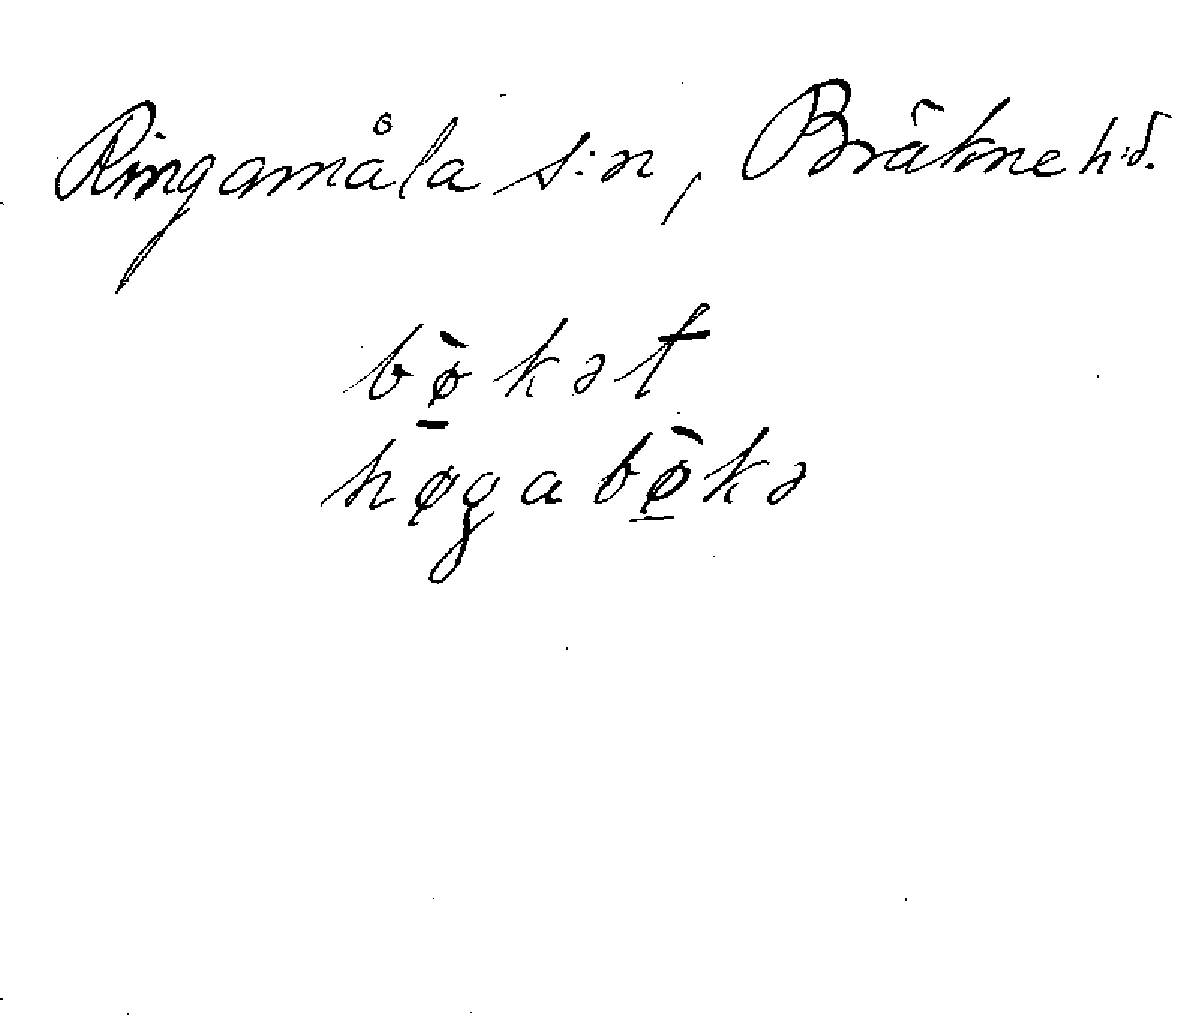 Ringamåla s:n, Bräkne h:d.
bø̱̀kət
høgabø̱̀kə